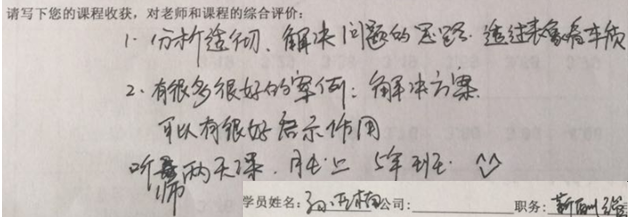 请写下您的课程收获，对老师和课程的综合评价：
1. 分析透彻、解决问题的思路. 透过表象看本质
2. 有很多很好的案例；解决方案.
可以有很好启示作用
听师两天课. 胜上 5年班.
学员姓名：孙 公司： 职务：薪酬